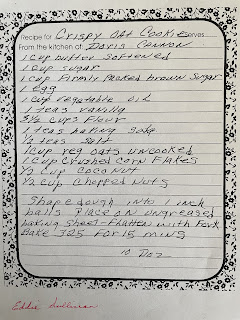 Recipe for Crispy Oat Cookie serves
From the kitchen of: Doris Cannon
1 cup butter softened
1 cup sugar
1 cup Firmly Packed brown sugar
1 egg
1 cup vegetable oil
1 teas vanilla
3½ cups flour
1 teas baking soda
½ teas salt
1 cup reg oats uncooked
1 cup crushed corn flakes
½ cup coconut
½ cup chopped nuts
Shape dough into 1 inch
balls place on ungreased
baking sheet - flatten with fork
Bake 325 for 15 mins
10 Doz
Eddie Sullivan